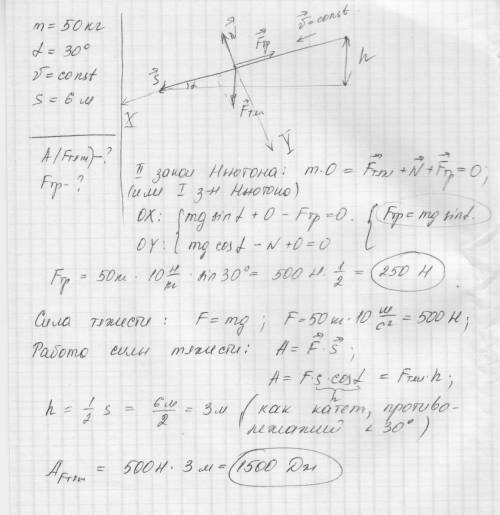 m = 50кг
α = 30°
v⃗ = const
S = 6м
A(Fтяж) - ?
Fтр - ?
N⃗
F⃗тр
v⃗ = const
h
S⃗
α
F⃗тяж
X
Y
II закон Ньютона: m·0 = F⃗тяж + N⃗ + F⃗тр = 0;
(или I з-н Ньютона)
OX: { mg sinα + 0 - Fтр = 0. { Fтр = mg sinα.
OY: { mg cosα - N + 0 = 0
Fтр = 50кг · 10 Н/кг · sin 30° = 500 Н · 1/2 = 250 Н.
Сила тяжести: F = mg; F = 50кг · 10 м/с² = 500 Н;
Работа силы тяжести: A = F⃗ · S⃗;
A = F·s·cosα = Fтяж · h;
h
h = 1/2 s = 6м/2 = 3м (как катет, противо-
лежащий ∠ 30°)
AFтяж = 500Н · 3м = 1500 Дж